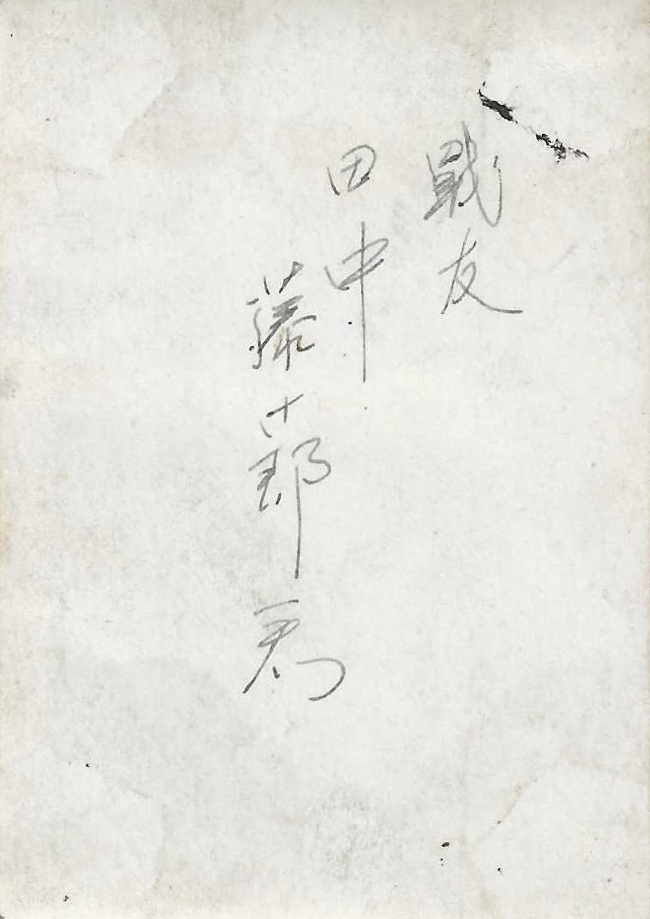 戦友
田中
藤十郎君